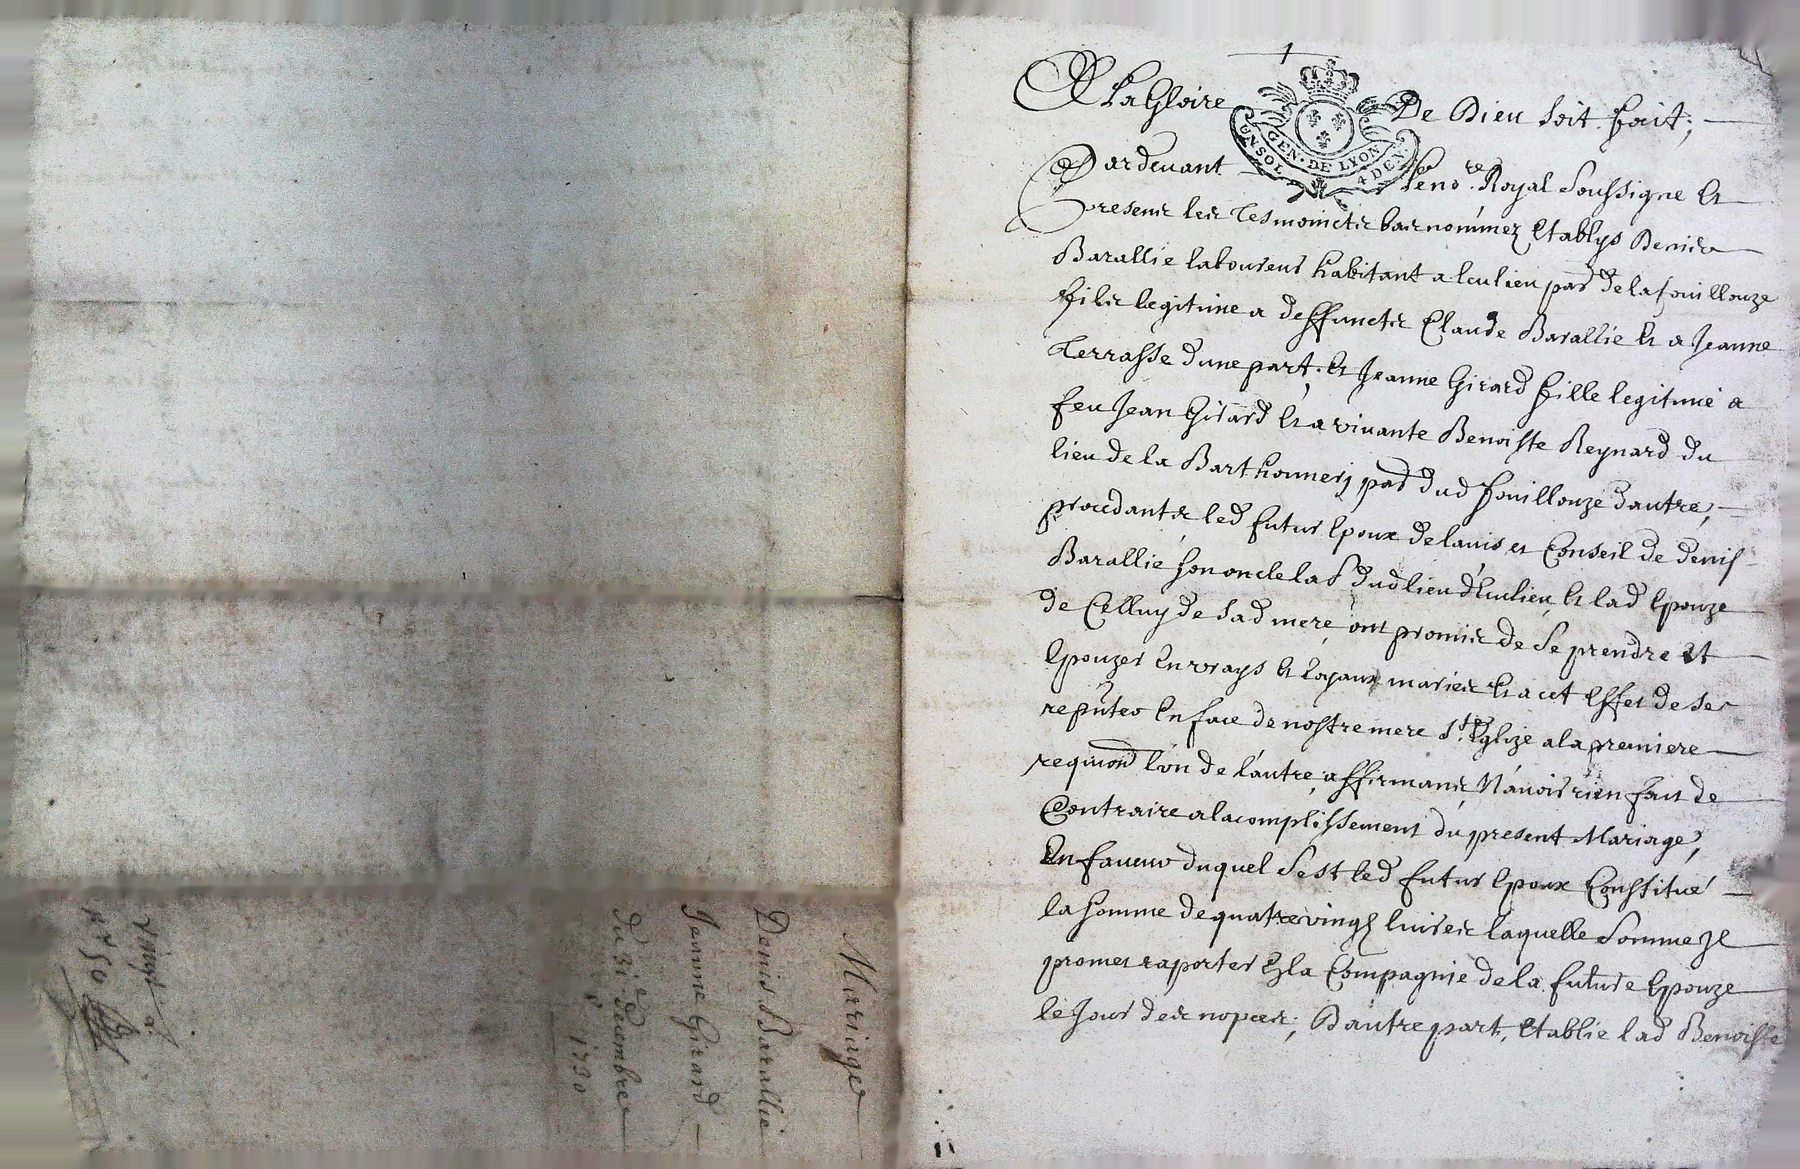 Mariage
Denis Barallie
Jeanne Girard
du 31e decembre
1730
vingt
n° 50
A La Gloire De Dieu soit fait;
GEN. DE LYON
UN SOL 4 DEN.
Pardevant le no.re Royal soussigne et
presents les tesmoincts bas nommez Etablys Denis
Barallie laboureur habitant a lieu par de la fouillouze
fils legitime a deffuncts Claude Barallie et a Jeanne
Terrasse dune part. et Jeanne Girard fille legitime a
feu Jean Girard et a vivante Benoiste Reynard du
lieu de la Barthonnery par dud fouillouze dautre,
procedants led futur Epoux de lavis et Conseil de denis
Barallie son oncle lab dud lieu et lad Epouze
de Celluy de sad mere ont promis de se prendre et
Epouzer En vrays et loyaux maries et a cet effet de se
En face de nostre mere Ste Eglize a la premiere
requion lon de lautre, affirmants Navoir rien fait de
Contraire a lacomplissement du present Mariage,
En faveur duquel sest led futur Epoux Constitué
la somme de quatre vingt livres laquelle somme Il
promet raporter En la Compagnie de la future Epouze
le Jour des nopces; Dautre part, Etablie lad Benoiste